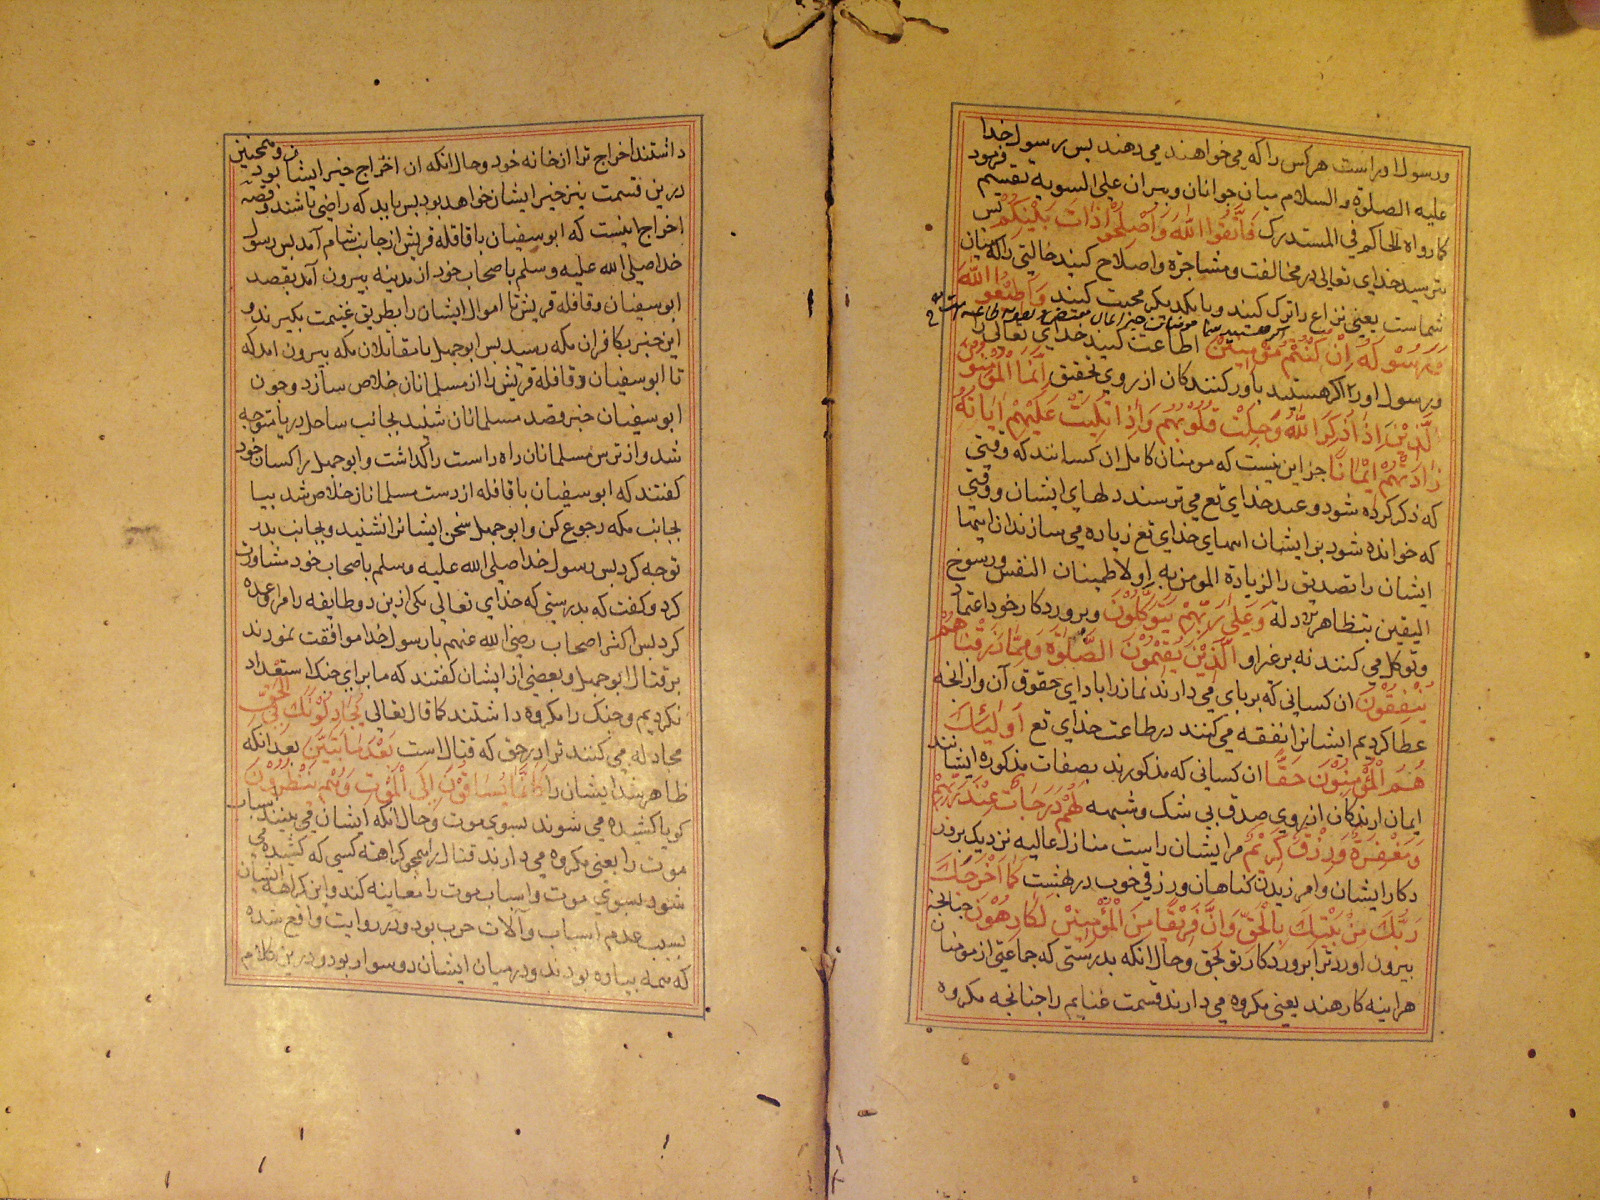 ورسول اوراست هر کس را که می خواهند می دهند بس رسول خدا
علیه الصلوة و السلام میان جوانان وپیران علی السویه تقسیم فرمود
کما رواه الحاکم فی المستدرک فَاتَّقُوا اللهَ وَاَصْلِحُوْا ذَاتَ بَیْنِکُمْ بس
بترسید خدای تعالی در مخالفت ومشاجره واصلاح کنید حالتی را که میان
شماست یعنی نزاع را ترک کنید وبا یکدیکر محبت کنید وَاَطِیْعُوا اللهَ
وَرَسُوْلَهُ اِنْ کُنْتُمْ مُؤْمِنِیْنَ اطاعت کنید خدای تعالی را
ورسول اورا اکر هستید باور کنندکان از روی تحقیق اِنَّمَا الْمُؤْمِنُوْنَ
الَّذِیْنَ اِذَا ذُکِرَ اللهُ وَجِلَتْ قُلُوْبُهُمْ وَاِذَا تُلِیَتْ عَلَیْهِمْ اٰیَاتُهُ
زَادَتْهُمْ اِیْمَانًا جز این نیست که مومنان کامل ان کسانند که وقتی
که ذکر کرده شود وعید خدای تع می ترسند دلهای ایشان ووقتی
که خوانده شود بر ایشان اسمای خدای تع زیاده می سازند ان اسما
ایشان را تصدیق را لزیادة المومن به او لاطمینان النفس ورسوخ
الیقین بتظاهر ادله وَعَلٰی رَبِّهِمْ یَتَوَکَّلُوْنَ وبر پروردکار خود اعتماد
وتوکل می کنند نه بر غیر او اَلَّذِیْنَ یُقِیْمُوْنَ الصَّلٰوةَ وَمِمَّا رَزَقْنَاهُمْ
یُنْفِقُوْنَ ان کسانی که بر پای می دارند نماز را با دای حقوق آن واز انچه
عطا کردیم ایشان را نفقه می کنند در طاعت خدای تع اُولٰئِکَ
هُمُ الْمُؤْمِنُوْنَ حَقًّا ان کسانی که مذکورند بصفات مذکوره ایشانند
ایمان ارندکان از روی صدق بی شک وشبهه لَهُمْ دَرَجَاتٌ عِنْدَ رَبِّهِمْ
وَمَغْفِرَةٌ وَرِزْقٌ کَرِیْمٌ مر ایشان راست منازل عالیه نزدیک پرور
دکار ایشان وامرزیدن کناهان ورزق خوب در بهشت کَمَا اَخْرَجَکَ
رَبُّکَ مِنْ بَیْتِکَ بِالْحَقِّ وَاِنَّ فَرِیْقًا مِنَ الْمُؤْمِنِیْنَ لَکَارِهُوْنَ چنانچه
بیرون اورد ترا پروردکار تو بحق وحال انکه بدرستی که جماعتی از مومنان
هراینه کارهند یعنی مکروه می دارند قسمت غنایم را چنانچه مکروه
داشتند اخراج ترا از خانه خود وحال انکه ان اخراج خیر ایشان بود وهمچنین
درین قسمت نیز خیر ایشان خواهد بود بس باید که راضی باشند وقصه
اخراج اینست که ابو سفیان با قافله قریش از جانب شام آمد بس رسول
خدا صلی الله علیه وسلم باصحاب خود از مدینه بیرون آمد بقصد
ابو سفیان وقافله قریش تا اموال ایشان را بطریق غنیمت بکیرند و
این خبر بکافران مکه رسید بس ابو جهل با مقاتلان مکه بیرون امد که
تا ابو سفیان وقافله قریش را از مسلمانان خلاص سازد وچون
ابو سفیان خبر وقصد مسلمانان شنید بجانب ساحل دریا متوجه
شد واز ترس مسلمانان راه راست را کذاشت وابو جهل را کسان خود
کفتند که ابو سفیان با قافله از دست مسلمانان خلاص شد بیا
بجانب مکه رجوع کن وابو جهل سخن ایشان را نشنید وبجانب بدر
توجه کرد بس رسول خدا صلی الله علیه وسلم باصحاب خود مشاورت
کرد وکفت که بدرستی که خدای تعالی یکی ازین دو طایفه را مرا وعده
کرد بس اکثر اصحاب رضی الله عنهم با رسول خدا موافقت نمودند
بر قتال ابو جهل وبعضی از ایشان کفتند که ما برای جنک استعداد
نکردیم وجنک را مکروه داشتند کما قال تعالی یُجَادِلُوْنَکَ فِی الْحَقِّ
مجادله می کنند ترا در حق که قتال است بَعْدَ مَا تَبَیَّنَ بعد انکه
ظاهر شد ایشان را کَاَنَّمَا یُسَاقُوْنَ اِلَی الْمَوْتِ وَهُمْ یَنْظُرُوْنَ
کویا کشیده می شوند بسوی موت وحال انکه ایشان می بینند اسباب
موت را یعنی مکروه می دارند قتال را همچو کراهة کسی که کشیده می
شود بسوی موت واسباب موت را معاینه کند واین کراهة ایشان
بسبب عدم اسباب وآلات حرب بود ودر روایت واقع شده
که همه پیاده بودند ودر میان ایشان دو سوار بود ودرین کلام